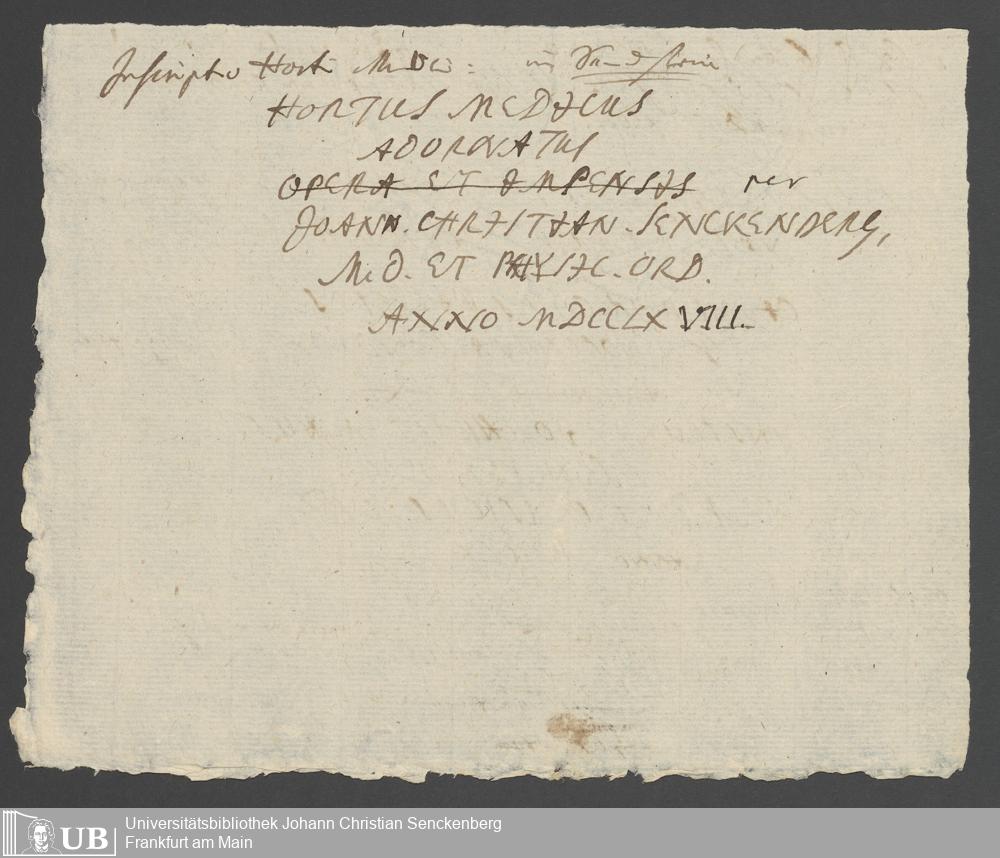 Inscriptio Horti Medici: in Sandstein
HORTUS MEDICUS
ADORNATUS
OPERA ET IMPENSIS per
JOANN. CHRISTIAN. SENCKENBERG,
MED. ET PHYSIC. ORD.
ANNO MDCCLXVIII.
UB
Universitätsbibliothek Johann Christian Senckenberg
Frankfurt am Main